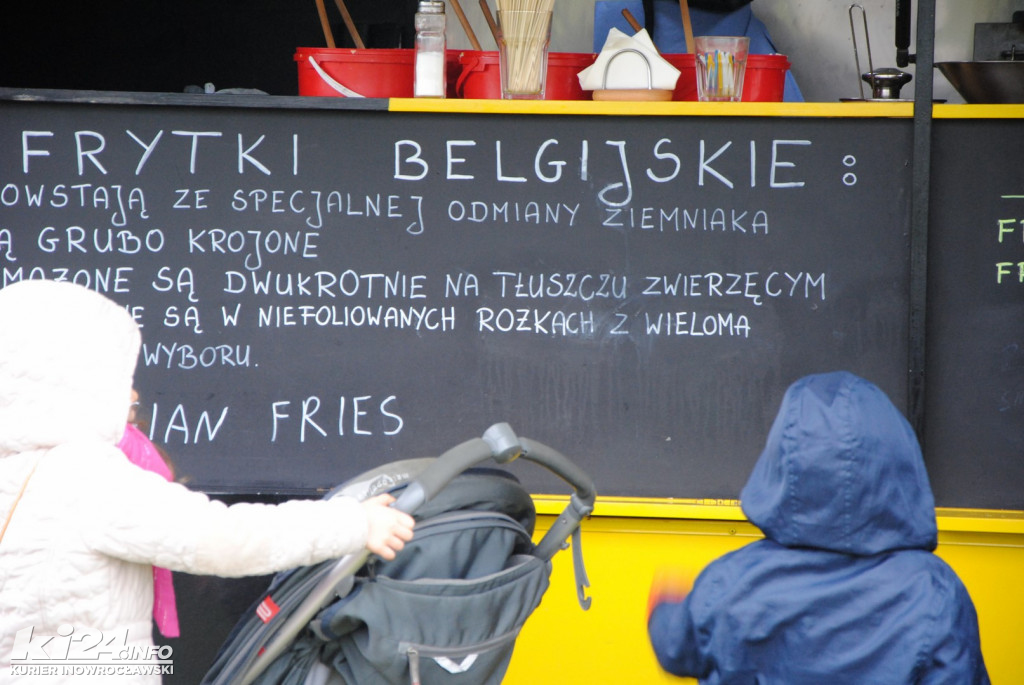 FRYTKI BELGIJSKE:
OWSTAJĄ ZE SPECJALNEJ ODMIANY ZIEMNIAKA
Ą GRUBO KROJONE
MAŻONE SĄ DWUKROTNIE NA TŁUSZCZU ZWIERZĘCYM
NE SĄ W NIEFOLIOWANYCH ROŻKACH Z WIELOMA
WYBORU.
IAN FRIES
F
FR
ki24.INFO
KURIER INOWROCŁAWSKI